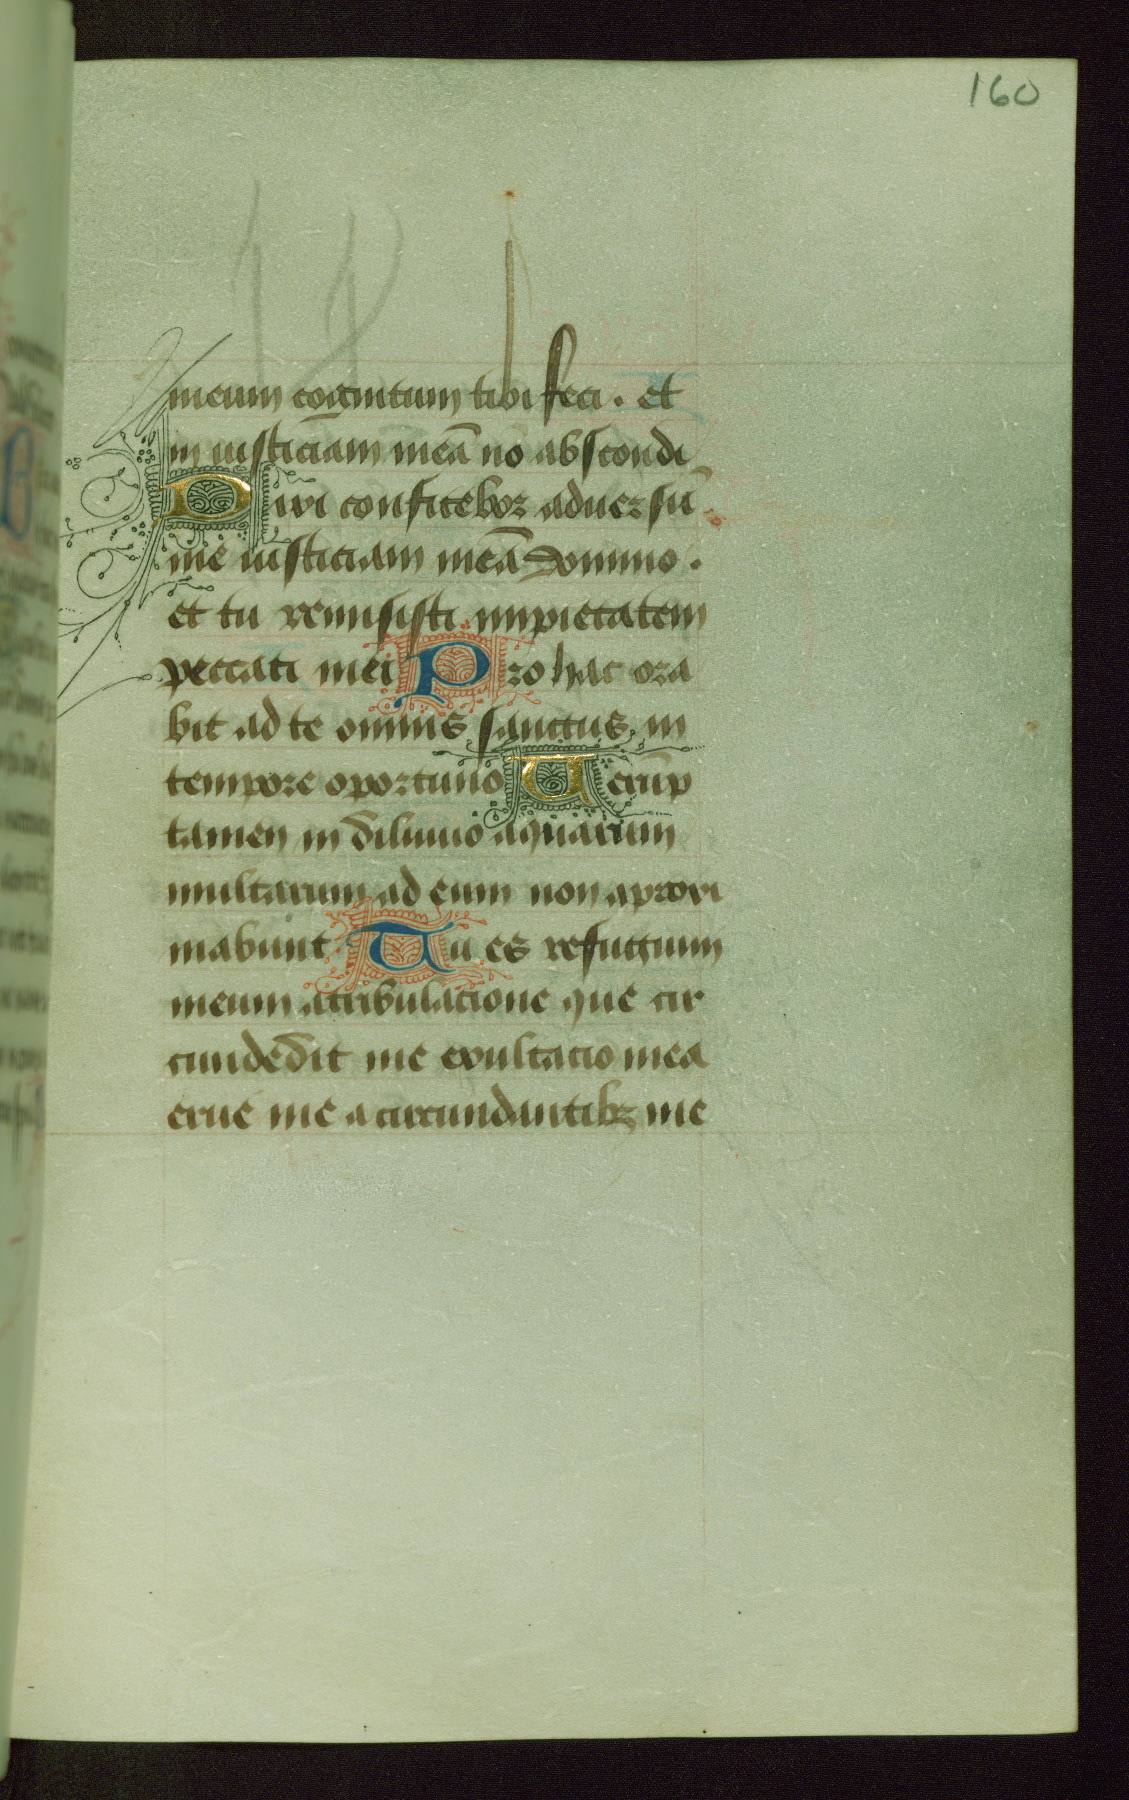 160
meum cognitum tibi feci . et
in iusticiam meā nō abscondi
Dixi confitebor aduersū
me iusticiam meā domino .
et tu remisisti impietatem
peccati mei Pro hac ora
bit ad te omnis sanctus in
tempore oportuno Uerūp
tamen in diluuio aquarum
multarum ad eum non aproxi
mabunt Tu es refugium
meum a tribulacione que cir
cumdedit me exultacio mea
erue me a circundantibꝫ me